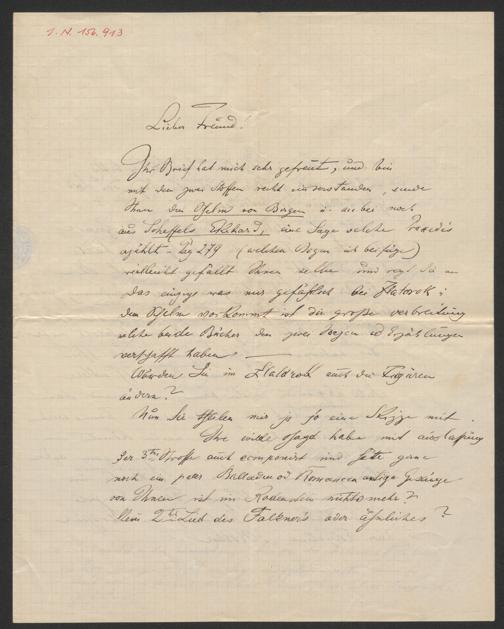 I. N. 156.913
Lieber Freund!
Ihr Brief hat mich sehr gefreut, und bin
mit den zwei Stofen recht einverstanden, sende
Ihnen den Schelm von Bergen u. hiebei noch
aus Scheffels Ekehard, eine Sage welche
erzählt – Pag 279 (welchen Bogen ich beifüge)
vielleicht gefällt Ihnen selbe und regt Sie an
das einzige was mir gefährlich bei
dem Schelm vorkommt ist die große verbreitung
welche beide Bücher den zwei Erzählungen
verschafft haben —
Würden Sie im auch die Figuren
ändern?
Nun Sie theilen mir ja so eine Skizze mit.
Ihre wilde Jagd habe mit auslassung
der 3ten Strofe auch componirt und hätte gerne
noch ein paar Balladen od Romanzen artige Gesänge
von Ihnen ist im Rodenstein nichts mehr?
Kein 2tes Lied des Falkners oder ähnliches?